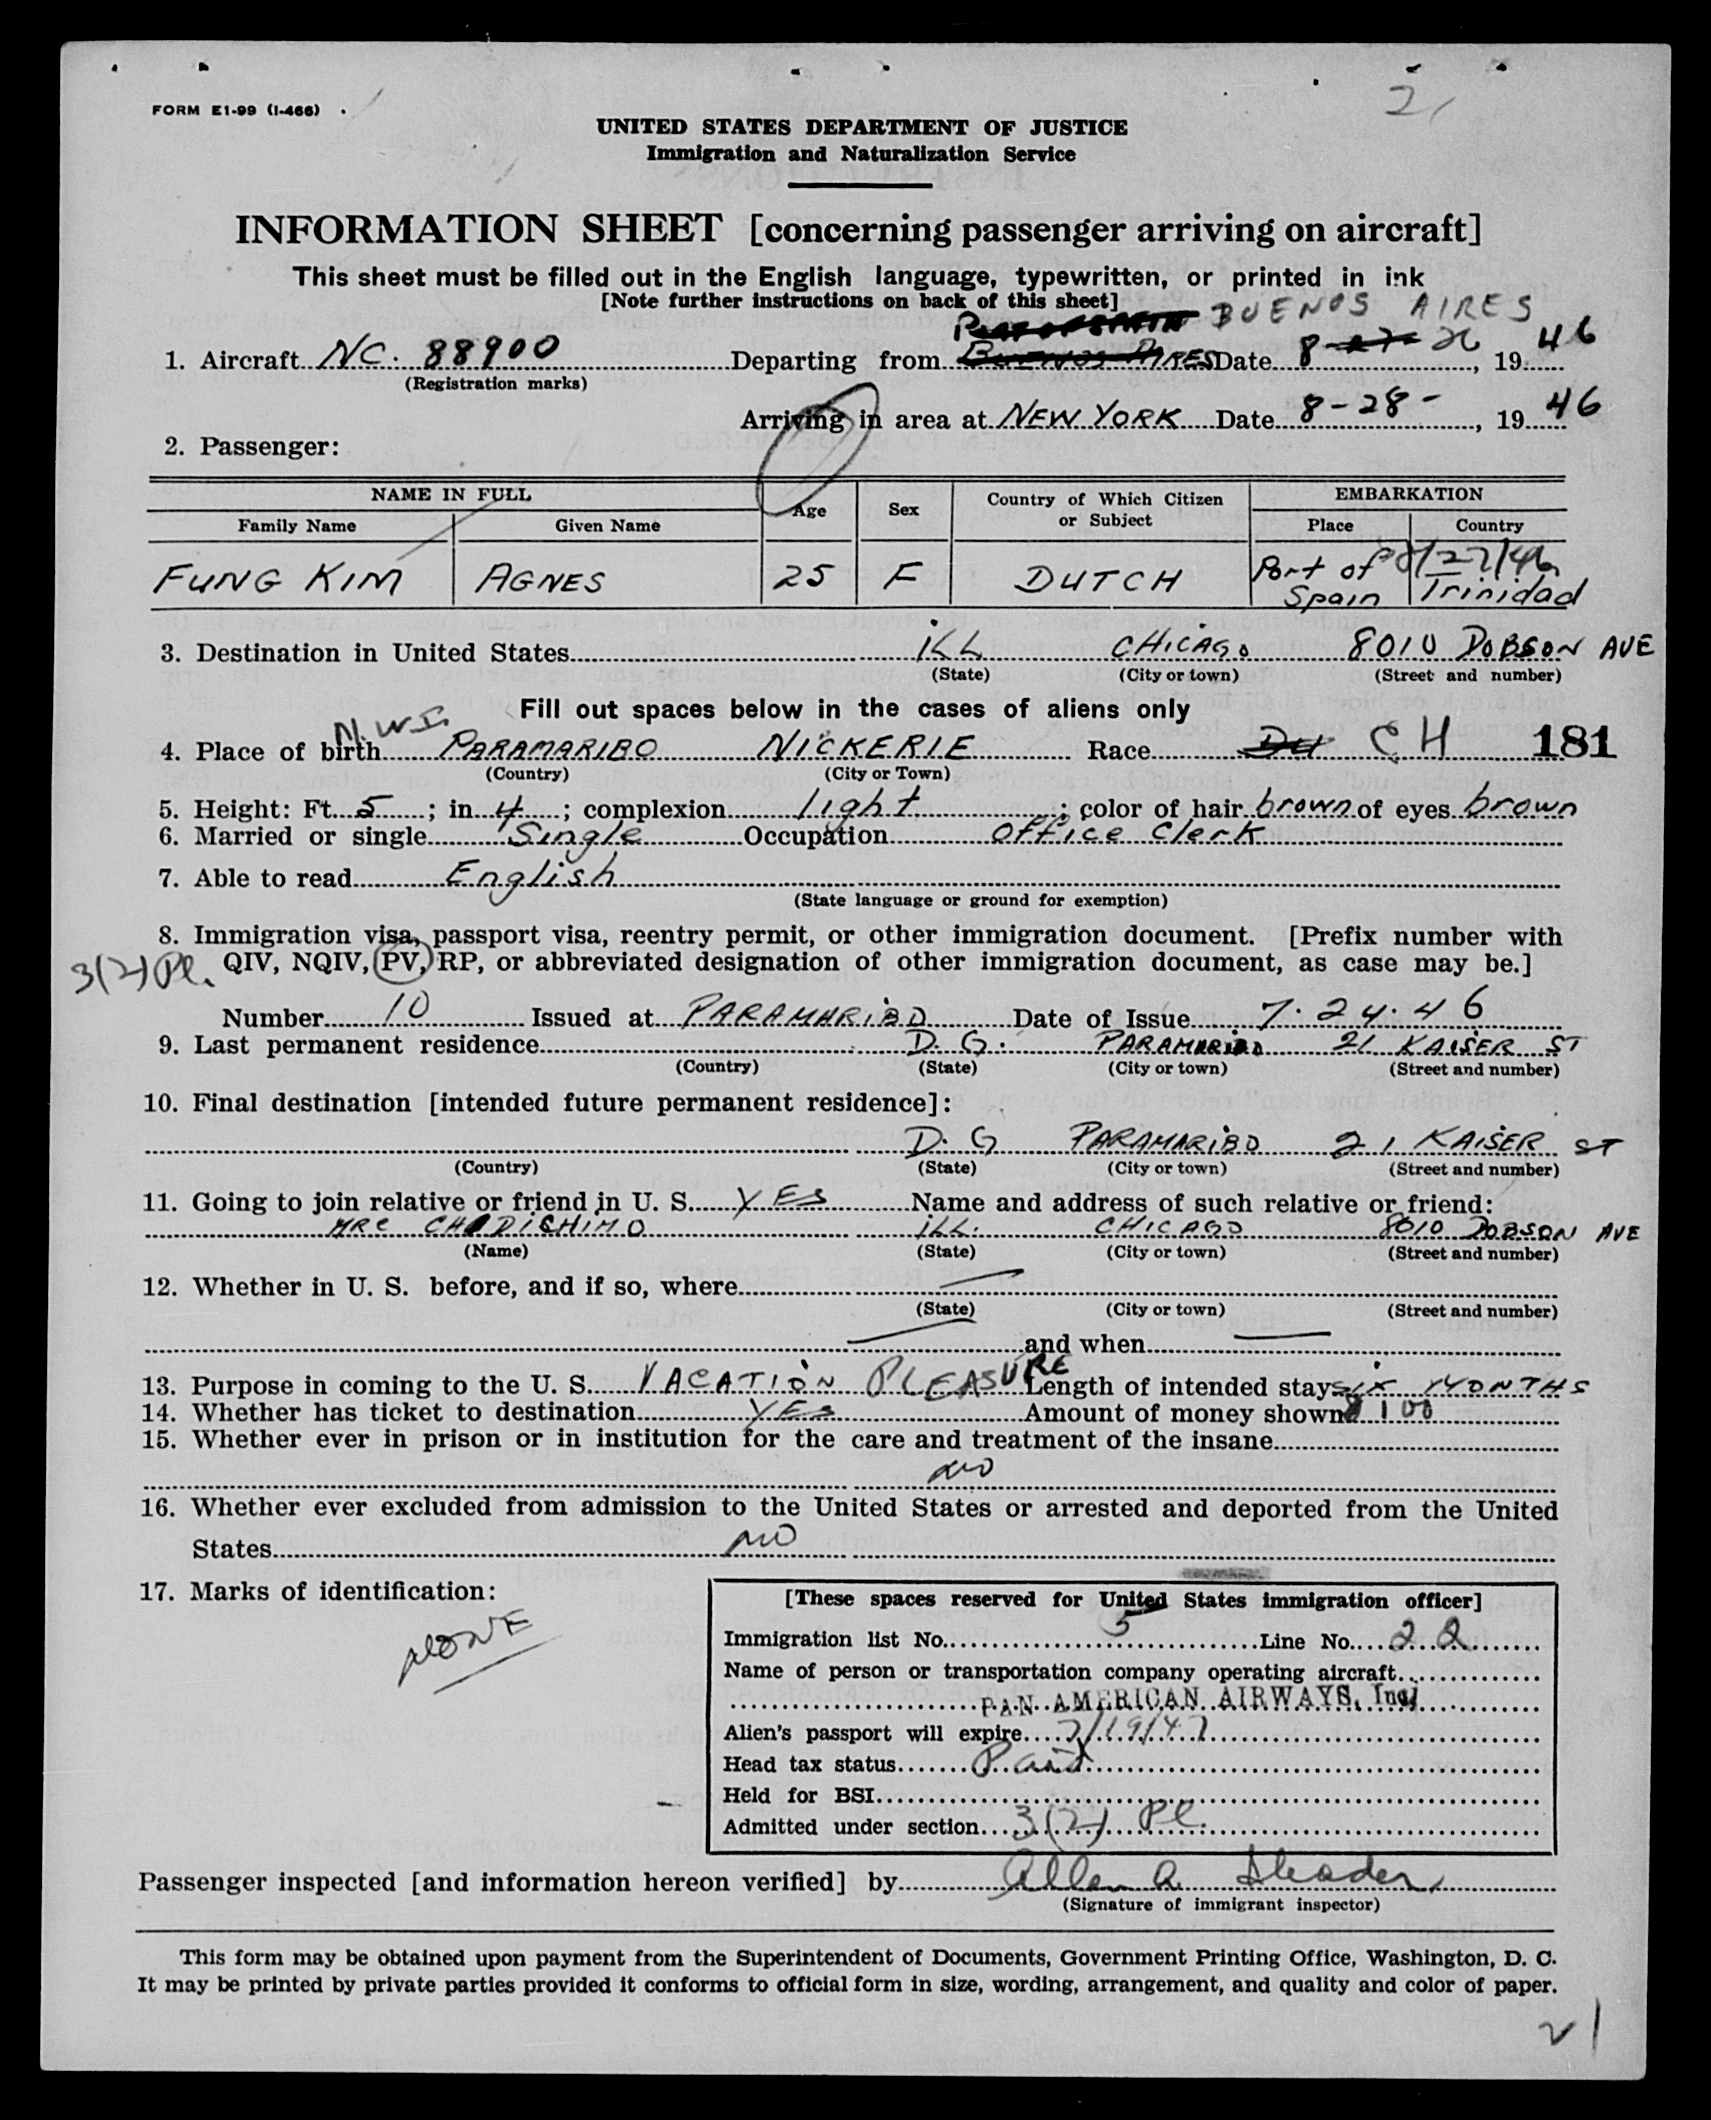 2
FORM E1-99 (I-466)
UNITED STATES DEPARTMENT OF JUSTICE
Immigration and Naturalization Service
INFORMATION SHEET [concerning passenger arriving on aircraft]
This sheet must be filled out in the English language, typewritten, or printed in ink
[Note further instructions on back of this sheet]
BUENOS AIRES
1. Aircraft NC. 88900 Departing from BUENOS AIRES Date 8-27- 26, 1946
(Registration marks)
Arriving in area at NEW YORK Date 8-28-, 1946
2. Passenger:
NAME IN FULL Age Sex Country of Which Citizen or Subject EMBARKATION
Family Name Given Name Place Country
8/27/46
FUNG KIM AGNES 25 F DUTCH Port of Spain Trinidad
3. Destination in United States ILL CHICAGO 8010 DOBSON AVE
(State) (City or town) (Street and number)
Fill out spaces below in the cases of aliens only
N.W.I.
4. Place of birth PARAMARIBO NICKERIE Race DU CH 181
(Country) (City or Town)
5. Height: Ft. 5; in 4; complexion light; color of hair brown of eyes brown
6. Married or single Single Occupation Office Clerk
7. Able to read English
(State language or ground for exemption)
8. Immigration visa, passport visa, reentry permit, or other immigration document. [Prefix number with
3(2) Pl. QIV, NQIV, PV, RP, or abbreviated designation of other immigration document, as case may be.]
Number 10 Issued at PARAMARIBO Date of Issue 7.24.46
9. Last permanent residence D.G. PARAMARIBO 21 KAISER ST
(Country) (State) (City or town) (Street and number)
10. Final destination [intended future permanent residence]:
D.G PARAMARIBO 21 KAISER ST
(Country) (State) (City or town) (Street and number)
11. Going to join relative or friend in U. S. YES Name and address of such relative or friend:
ILL. CHICAGO 8010 DOBSON AVE
(Name) (State) (City or town) (Street and number)
12. Whether in U. S. before, and if so, where
(State) (City or town) (Street and number)
and when
13. Purpose in coming to the U. S. VACATION PLEASURE Length of intended stay SIX MONTHS
14. Whether has ticket to destination YES Amount of money shown $100
15. Whether ever in prison or in institution for the care and treatment of the insane
no
16. Whether ever excluded from admission to the United States or arrested and deported from the United
States no
17. Marks of identification:
NONE
[These spaces reserved for United States immigration officer]
Immigration list No. 5 Line No. 22
Name of person or transportation company operating aircraft
PAN AMERICAN AIRWAYS, Inc.
Alien's passport will expire 7/19/47
Head tax status Paid
Held for BSI
Admitted under section 3(2) Pl.
Passenger inspected [and information hereon verified] by Allen A.
(Signature of immigrant inspector)
This form may be obtained upon payment from the Superintendent of Documents, Government Printing Office, Washington, D. C.
It may be printed by private parties provided it conforms to official form in size, wording, arrangement, and quality and color of paper.
21